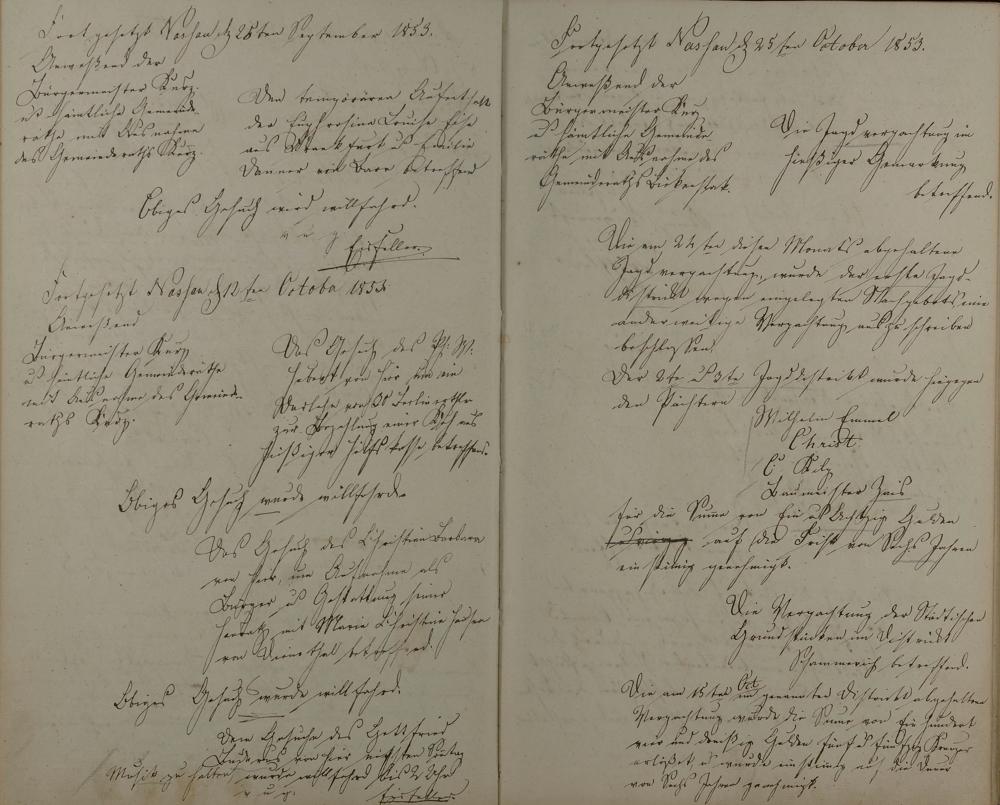 Fortgesetzt Nassau d 28ten September 1853.
Anwesend der
Bürgermeister Kurz.
u sämtliche Gemeinde-
räthe mit Ausnahme
des Gemeinderaths Kurz.
Den temporären Aufenthalt
der Euphrosina Louise
aus Frankfurt u Emilie
Danner von betreffend
Obiges Gesuch wird willfahrd.
v u g
Fortgesetzt Nassau d 12ten October 1853
Anwesend
Bürgermeister Kurz
u sämtliche Gemeinderäthe
mit Ausnahme des Gemeinde-
raths Kurz.
Das Gesuch des
von hier, um ein
Darlehn von
zur Bezahlung einer Kuh aus
hiesiger Hülfskasse, betreffend.
Obiges Gesuch wurde willfahrd.
Das Gesuch des Christian Barbara
von hier, um Aufnahme als
Bürger u Gestattung seiner
Heirath mit Maria Christine
von Dienethal betreffend.
Obiges Gesuch wurde willfahrd.
Dem Gesuche des Gottfried
von hier nächsten Sontag
Musik zu halten wurde willfahrd bis 2 Uhr
v u g.
Fortgesetzt Nassau d 25ten October 1853.
Anwesend der
Bürgermeister Kurz
u sämtliche Gemeinde
räthe mit Ausnahme des
Gemeinderaths
Die Jagdverpachtung in
hiesiger Gemarkung
betreffend.
Die am 24ten dieses Monats abgehaltene
Jagdverpachtung, wurde der erste Jagd-
distrikt wegen eingelegten Nachgebots eine
anderweitige Verpachtung auszuschreiben
beschlossen.
Der 2te u 3te Jagddistrikt wurde hingegen
den Pächtern
Wilhelm Emmel
Christ
C.
Baumeister Zais
für die Summe von Ein u Achtzig Gulden
auf die Frist von Sechs Jahren
einstimig genehmigt.
Die Verpachtung der Städtischen
Grundstücken im District
betreffend.
Die am 15ten Oct im genannten District abgehalten
Verpachtung wurde die Sume von Ein hundert
vier und dreißig Gulden fünf u fünfzig Kreuzer
erlößt, u wurde einstimig auf die Dauer
von Sechs Jahren genehmigt.